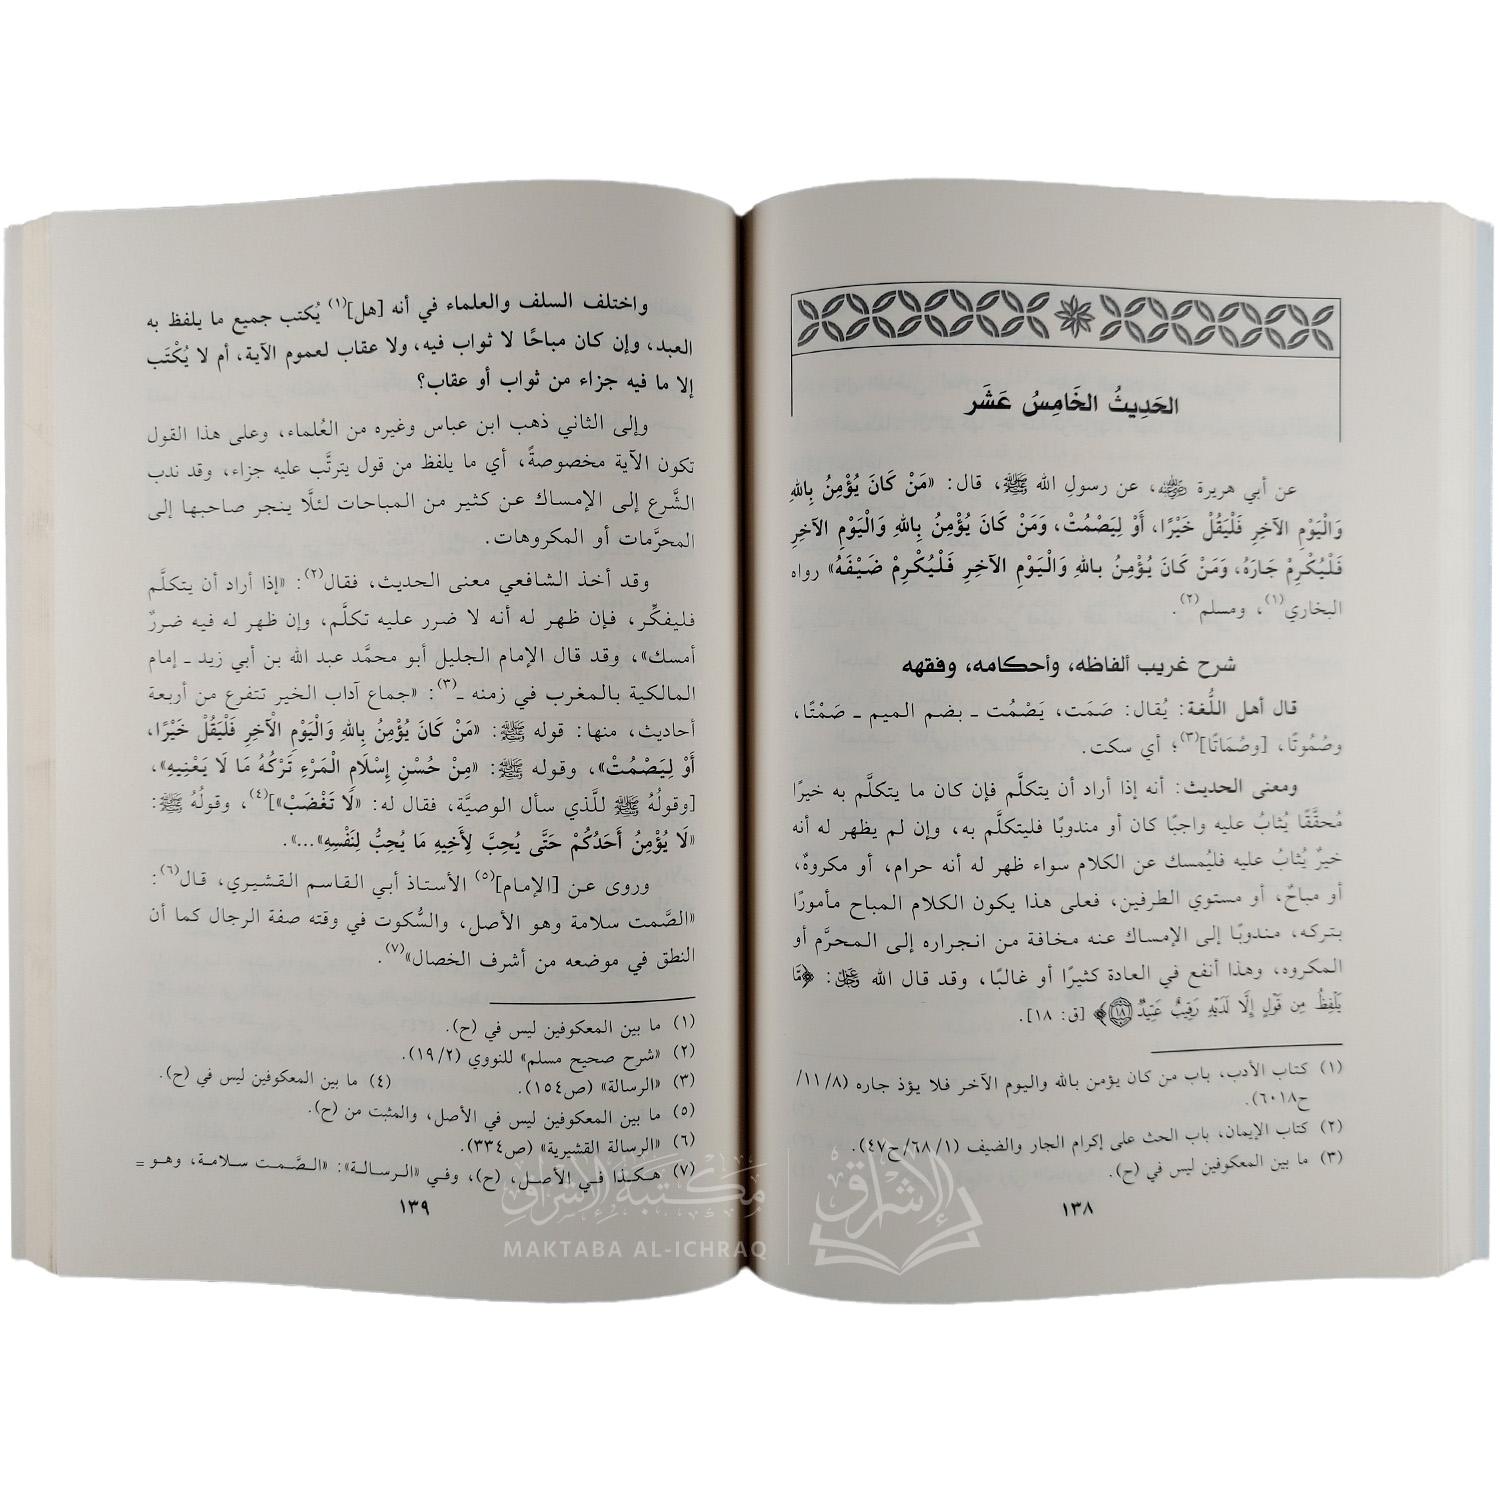 الحَدِيثُ الخَامِسُ عَشَر
عن أبي هريرة ﵁، عن رسولِ الله ﷺ، قال: «مَنْ كَانَ يُؤْمِنُ بِاللهِ
وَالْيَوْمِ الآخِرِ فَلْيَقُلْ خَيْرًا، أَوْ لِيَصْمُتْ، وَمَنْ كَانَ يُؤْمِنُ بِاللهِ وَالْيَوْمِ الآخِرِ
فَلْيُكْرِمْ جَارَهُ، وَمَنْ كَانَ يُؤْمِنُ بِاللهِ وَالْيَوْمِ الآخِرِ فَلْيُكْرِمْ ضَيْفَهُ» رواه
البخاري(١)، ومسلم(٢).
شرح غريب ألفاظه، وأحكامه، وفقهه
قال أهل اللُّغة: يُقال: صَمَت، يَصْمُت ـ بضم الميم ـ صَمْتًا،
وصُمُوتًا، [وصُمَاتًا](٣)؛ أي سكت.
ومعنى الحديث: أنه إذا أراد أن يتكلَّم فإن كان ما يتكلَّم به خيرًا
مُحقَّقًا يُثابُ عليه واجبًا كان أو مندوبًا فليتكلَّم به، وإن لم يظهر له أنه
خيرٌ يُثابُ عليه فليُمسك عن الكلام سواء ظهر له أنه حرام، أو مكروهٌ،
أو مباحٌ، أو مستوي الطرفين، فعلى هذا يكون الكلام المباح مأمورًا
بتركه، مندوبًا إلى الإمساك عنه مخافة من انجراره إلى المحرَّم أو
المكروه، وهذا أنفع في العادة كثيرًا أو غالبًا، وقد قال الله ﷿: ﴿مَّا
يَلْفِظُ مِن قَوْلٍ إِلَّا لَدَيْهِ رَقِيبٌ عَتِيدٌ ١٨﴾ [ق: ١٨].
(١) كتاب الأدب، باب من كان يؤمن بالله واليوم الآخر فلا يؤذ جاره (١١/٨/
ح٦٠١٨).
(٢) كتاب الإيمان، باب الحث على إكرام الجار والضيف (٦٨/١/ح٤٧).
(٣) ما بين المعكوفين ليس في (ح).
١٣٨
واختلف السلف والعلماء في أنه [هل](١) يُكتب جميع ما يلفظ به
العبد، وإن كان مباحًا لا ثواب فيه، ولا عقاب لعموم الآية، أم لا يُكْتَب
إلا ما فيه جزاء من ثواب أو عقاب؟
وإلى الثاني ذهب ابن عباس وغيره من العُلماء، وعلى هذا القول
تكون الآية مخصوصةً، أي ما يلفظ من قول يترتَّب عليه جزاء، وقد ندب
الشَّرع إلى الإمساك عن كثير من المباحات لئلَّا ينجر صاحبها إلى
المحرَّمات أو المكروهات.
وقد أخذ الشافعي معنى الحديث، فقال(٢): «إذا أراد أن يتكلَّم
فليفكِّر، فإن ظهر له أنه لا ضرر عليه تكلَّم، وإن ظهر له فيه ضررٌ
أمسك»، وقد قال الإمام الجليل أبو محمَّد عبد الله بن أبي زيد ـ إمام
المالكية بالمغرب في زمنه ـ(٣): «جماع آداب الخير تتفرع من أربعة
أحاديث، منها: قوله ﷺ: «مَنْ كَانَ يُؤْمِنُ بِاللهِ وَالْيَوْمِ الْآخِرِ فَلْيَقُلْ خَيْرًا،
أَوْ لِيَصْمُتْ»، وقوله ﷺ: «مِنْ حُسْنِ إِسْلَامِ الْمَرْءِ تَرْكُهُ مَا لَا يَعْنِيهِ»،
[وقولُهُ ﷺ للَّذي سأل الوصيَّة، فقال له: «لَا تَغْضَبْ»](٤)، وقولُهُ ﷺ:
«لَا يُؤْمِنُ أَحَدُكُمْ حَتَّى يُحِبَّ لِأَخِيهِ مَا يُحِبُّ لِنَفْسِهِ»...».
وروى عن [الإمام](٥) الأستاذ أبي القاسم القشيري، قال(٦):
«الصَّمت سلامة وهو الأصل، والسُّكوت في وقته صفة الرجال كما أن
النطق في موضعه من أشرف الخصال»(٧).
(١) ما بين المعكوفين ليس في (ح).
(٢) «شرح صحيح مسلم» للنووي (١٩/٢).
(٣) «الرسالة» (ص١٥٤). (٤) ما بين المعكوفين ليس في (ح).
(٥) ما بين المعكوفين ليس في الأصل، والمثبت من (ح).
(٦) «الرسالة القشيرية» (ص٣٣٤).
(٧) هكذا في الأصل، (ح)، وفي «الرسالة»: «الصَّمت سلامة، وهو =
١٣٩
مكتبة الإشراق
MAKTABA AL-ICHRAQ
الإشراق